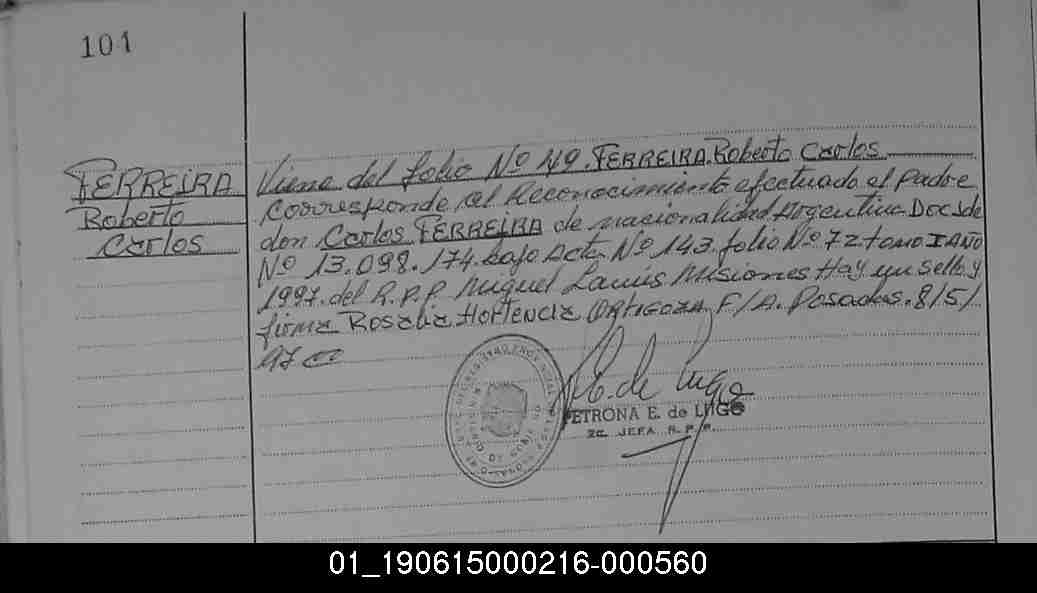 101
FERREIRA
Roberto
Carlos
Viene del folio Nº 49. FERREIRA. Roberto Carlos
corresponde al Reconocimiento efectuado el padre
don Carlos FERREIRA de nacionalidad Argentina Doc. Ide
Nº 13.098.174. bajo Acta Nº 143. folio Nº 72 tomo I AÑO
1997. del R.P.P. Miguel Lanús Misiones Hay un sello y
firma Rosalia Hortencia ORTIGOZA F/A. Posadas. 8/5/
97
P. E. de Lugo
PETRONA E. de LUGO
2a. JEFA R. P. P.
01_190615000216-000560